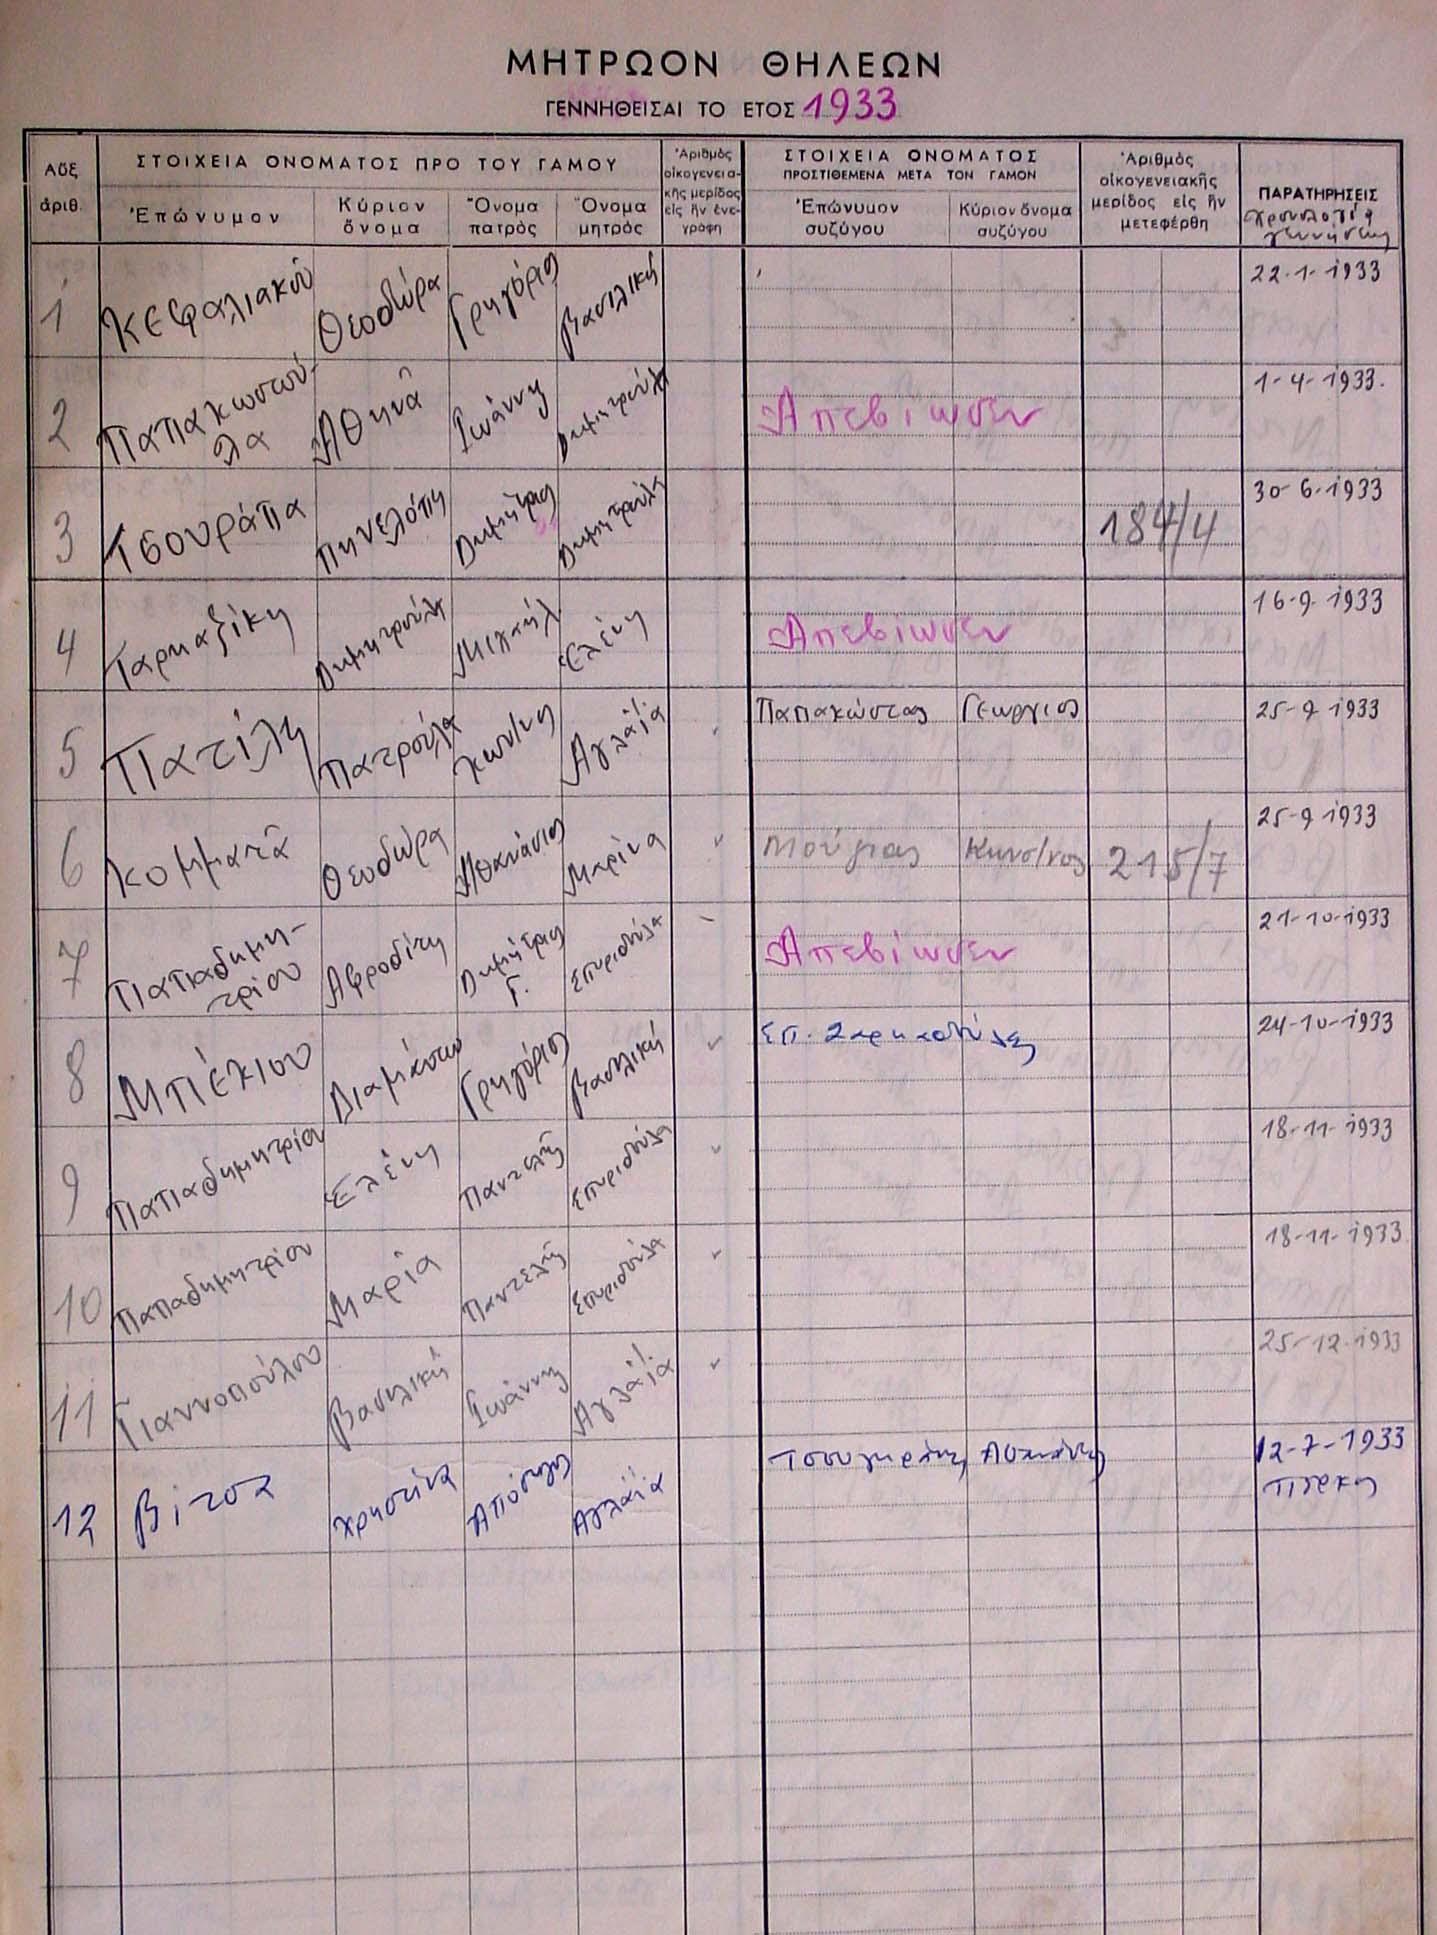 ΜΗΤΡΩΟΝ ΘΗΛΕΩΝ
ΓΕΝΝΗΘΕΙΣΑΙ ΤΟ ΕΤΟΣ 1933
Αὔξ. ἀριθ.
ΣΤΟΙΧΕΙΑ ΟΝΟΜΑΤΟΣ ΠΡΟ ΤΟΥ ΓΑΜΟΥ
Ἐπώνυμον
Κύριον ὄνομα
Ὄνομα πατρὸς
Ὄνομα μητρὸς
Ἀριθμὸς οἰκογενειακῆς μερίδος εἰς ἣν ἐνεγράφη
ΣΤΟΙΧΕΙΑ ΟΝΟΜΑΤΟΣ
ΠΡΟΣΤΙΘΕΜΕΝΑ ΜΕΤΑ ΤΟΝ ΓΑΜΟΝ
Ἐπώνυμον συζύγου
Κύριον ὄνομα συζύγου
Ἀριθμὸς οἰκογενειακῆς μερίδος εἰς ἣν μετεφέρθη
ΠΑΡΑΤΗΡΗΣΕΙΣ
χρονολογία γεννήσεως
1 Κεφαλιακοῦ Θεοδώρα Γρηγόριος Βασιλική 22-1-1933
2 Παπακωστούλα Ἀθηνᾶ Ἰωάννης Δημητρούλα Ἀπεβίωσεν 1-4-1933.
3 Τσουράπα Πηνελόπη Δημήτριος Δημητρούλα 184/4 30-6-1933
4 Δημητρούλα Μιχαήλ Ἑλένη Ἀπεβίωσεν 16-9-1933
5 Πατίλη Πατρούλα Κων/νος Ἀγλαΐα Παπακώστας Γεώργιος 25-9-1933
6 Κομματᾶ Θεοδώρα Ἀθανάσιος Μαρίνα Μούγιας Κωνσ/νος 215/7 25-9-1933
7 Παπαδημητρίου Ἀφροδίτη Δημήτριος Γ. Σπυριδούλα Ἀπεβίωσεν 21-10-1933
8 Μπέκιου Διαμάντω Γρηγόριος Βασιλική Σπ. 24-10-1933
9 Παπαδημητρίου Ἑλένη Παντελῆς Σπυριδούλα 18-11-1933
10 Παπαδημητρίου Μαρία Παντελῆς Σπυριδούλα 18-11-1933
11 Γιαννοπούλου Βασιλική Ἰωάννης Ἀγλαΐα 25-12-1933
12 Βίτσα Χρηστίνα Ἀπόστολος Ἀγλαΐα 12-7-1933